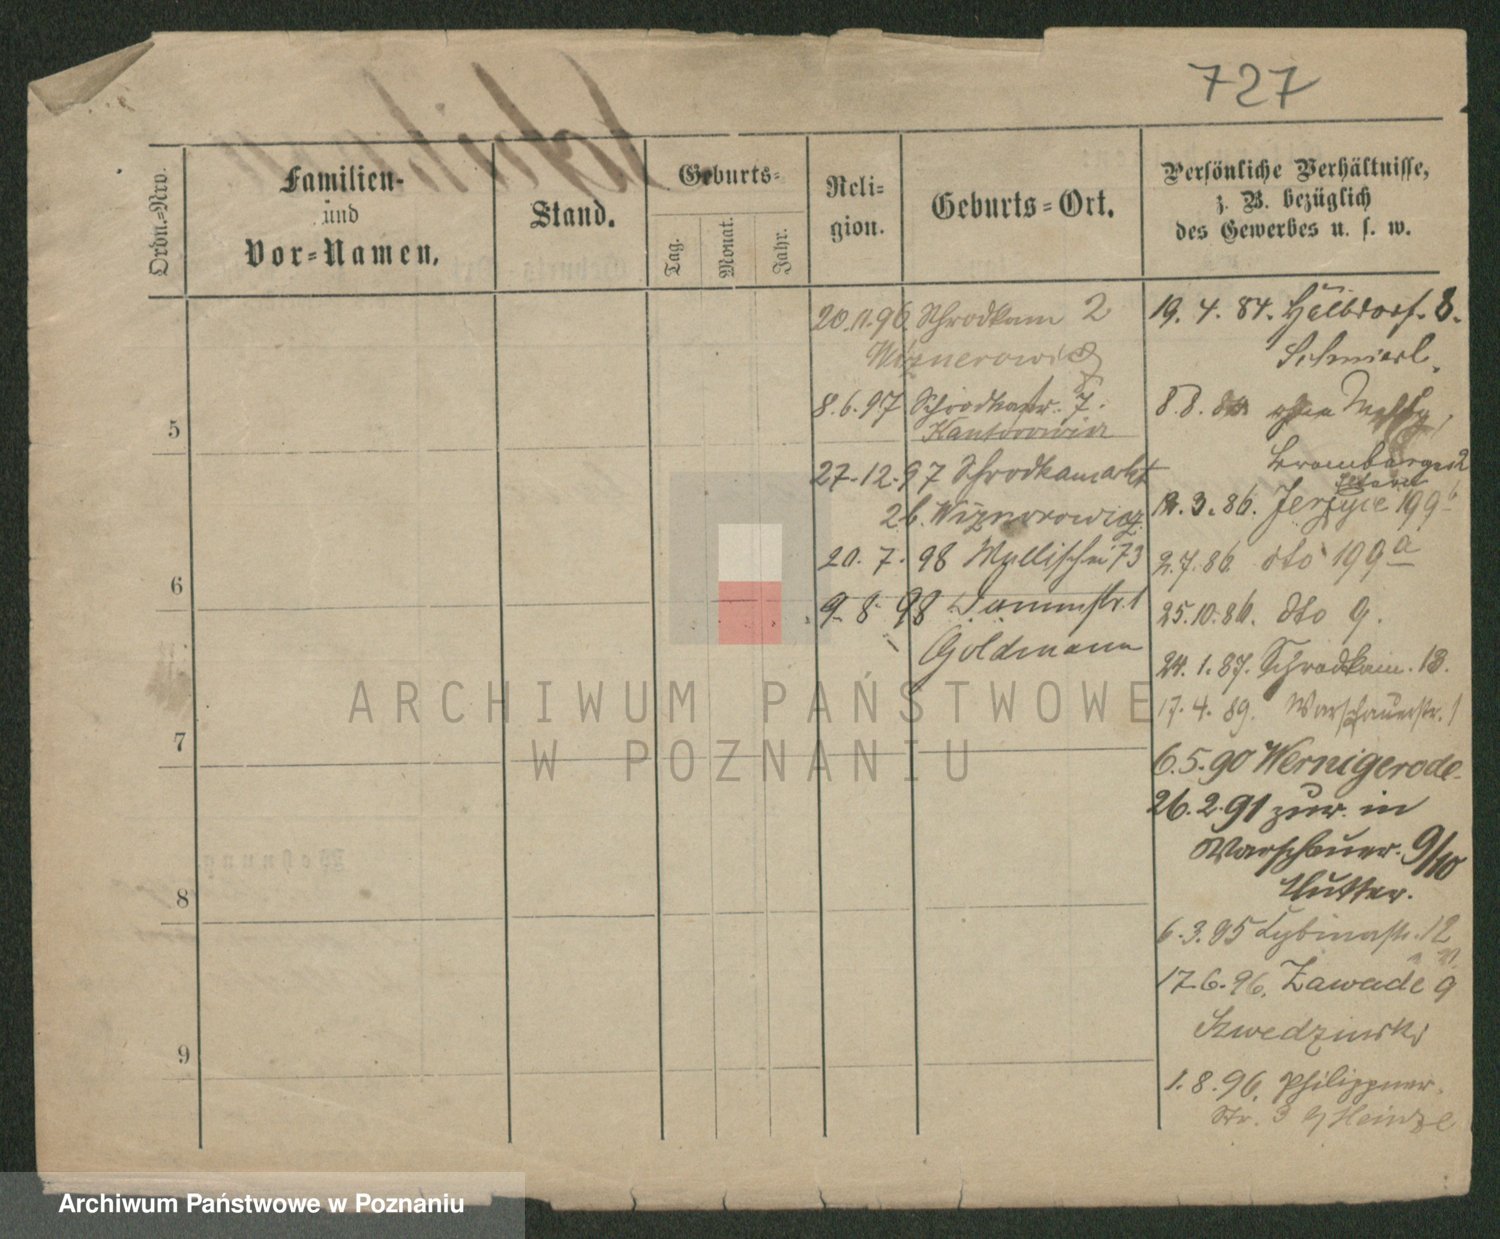 727
Ordn.-Nro.
Familien-
und
Vor-Namen.
Stand.
Geburts-
Tag.
Monat.
Jahr.
Reli-
gion.
Geburts-Ort.
Persönliche Verhältnisse,
z. B. bezüglich
des Gewerbes u. s. w.
5
6
7
8
9
20.11.96 Schrodkam 2
8.6.97 Schrodkastr. 7.
Kantorowicz
27.12.97 Schrodkamarkt
26.
20.7.98 Wallischei 73
9.8.98 Dammstr. 1
Goldmann
19.4.84.
8.8. ohne
Bromberger 2
3.86. Jerzyce 199
2.7.86 dto 199a
25.10.86. dto 9.
24.1.87. Schrodkam. 13.
17.4.89. Warschauerstr. 1
6.5.90 Wernigerode.
26.2.91 zur. in
Warschauer. 9/10
Mutter.
6.3.95 Cybinastr. 12
17.6.96. Zawade 9
Szwedzinski
1.8.96. Philippiner
Str. 3 b/ Heinze
ARCHIWUM PAŃSTWOWE
W POZNANIU
Archiwum Państwowe w Poznaniu